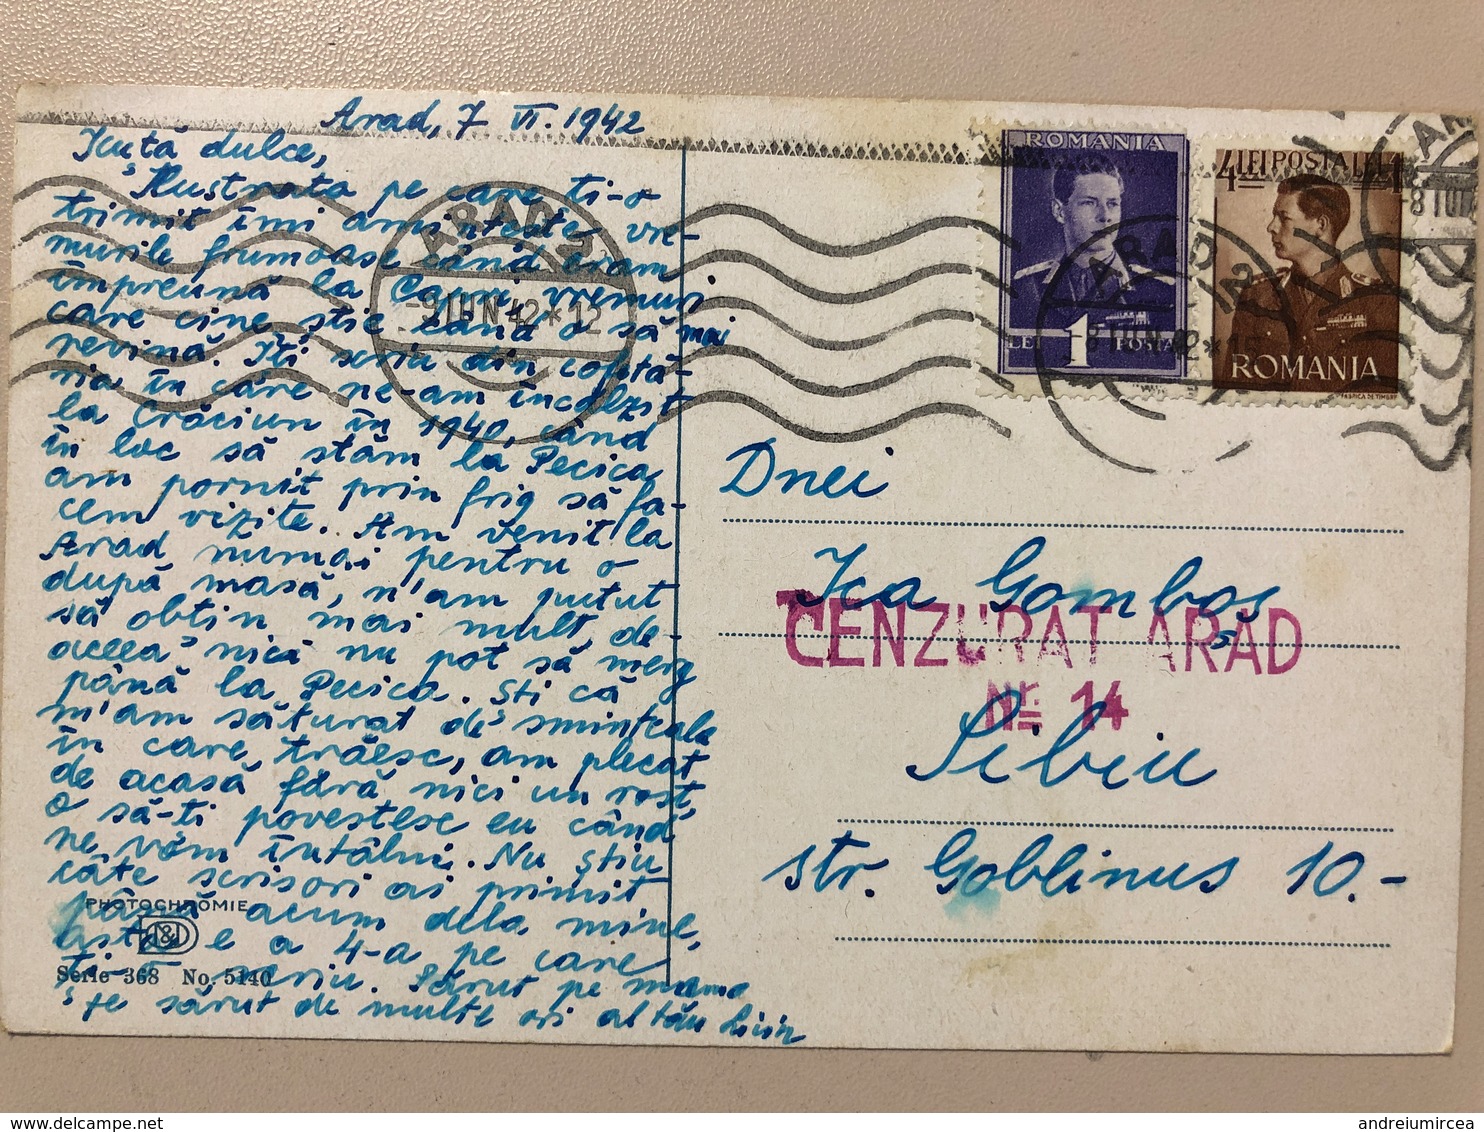 Arad, 7 VI. 1942
Icuță dulce,
Ilustrata pe care ți-o
trimit îmi amintește vre-
murile frumoase când eram
împreună la Capri, vremuri
care cine știe când o să mai
revină. Îți scriu din cofetă-
ria în care ne-am încălzit
la Crăciun în 1940, când
în loc să stăm la Pecica
am pornit prin frig să fa-
cem vizite. Am venit la
Arad numai pentru o
după masă, n'am putut
să obțin mai mult, de-
aceea nică nu pot să merg
până la Pecica. Ști că
m'am săturat de smințeala
în care trăesc, am plecat
de acasă fără nici un rost,
o să-ți povestesc eu când
ne vom întâlni. Nu știu
câte scrisori ai primit
până acum dela mine,
asta e a 4-a pe care
ți-o scriu. Sărut pe mama
te sărut de multe ori al tău Liviu
PHOTOCHROMIE
Serie 368 No. 5140
ARAD
-9 IUN 42 * 12
ROMANIA
1
LEI POSTA
4 LEI POSTA LEI 4
ROMANIA
FABRICA DE TIMBRE
ARAD
8 IUN 42
Dnei
Ica Gomboș
CENZURAT ARAD
Nr. 14
Sibiu
str. Goblinus 10.-
andreiumircea